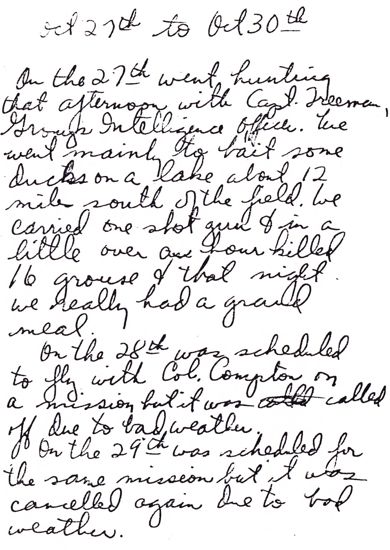 Oct 27th to Oct 30th
On the 27th went hunting
that afternoon with Capt. Freeman,
Group Intelligence Officer. We
went mainly to bait some
ducks on a lake about 12
mile south of the field. We
carried one shot gun & in a
little over an hour killed
16 grouse & that night
we really had a grand
meal.
On the 28th was scheduled
to fly with Col. Compton on
a mission but it was called
off due to bad weather.
On the 29th was scheduled for
the same mission but it was
cancelled again due to bad
weather.